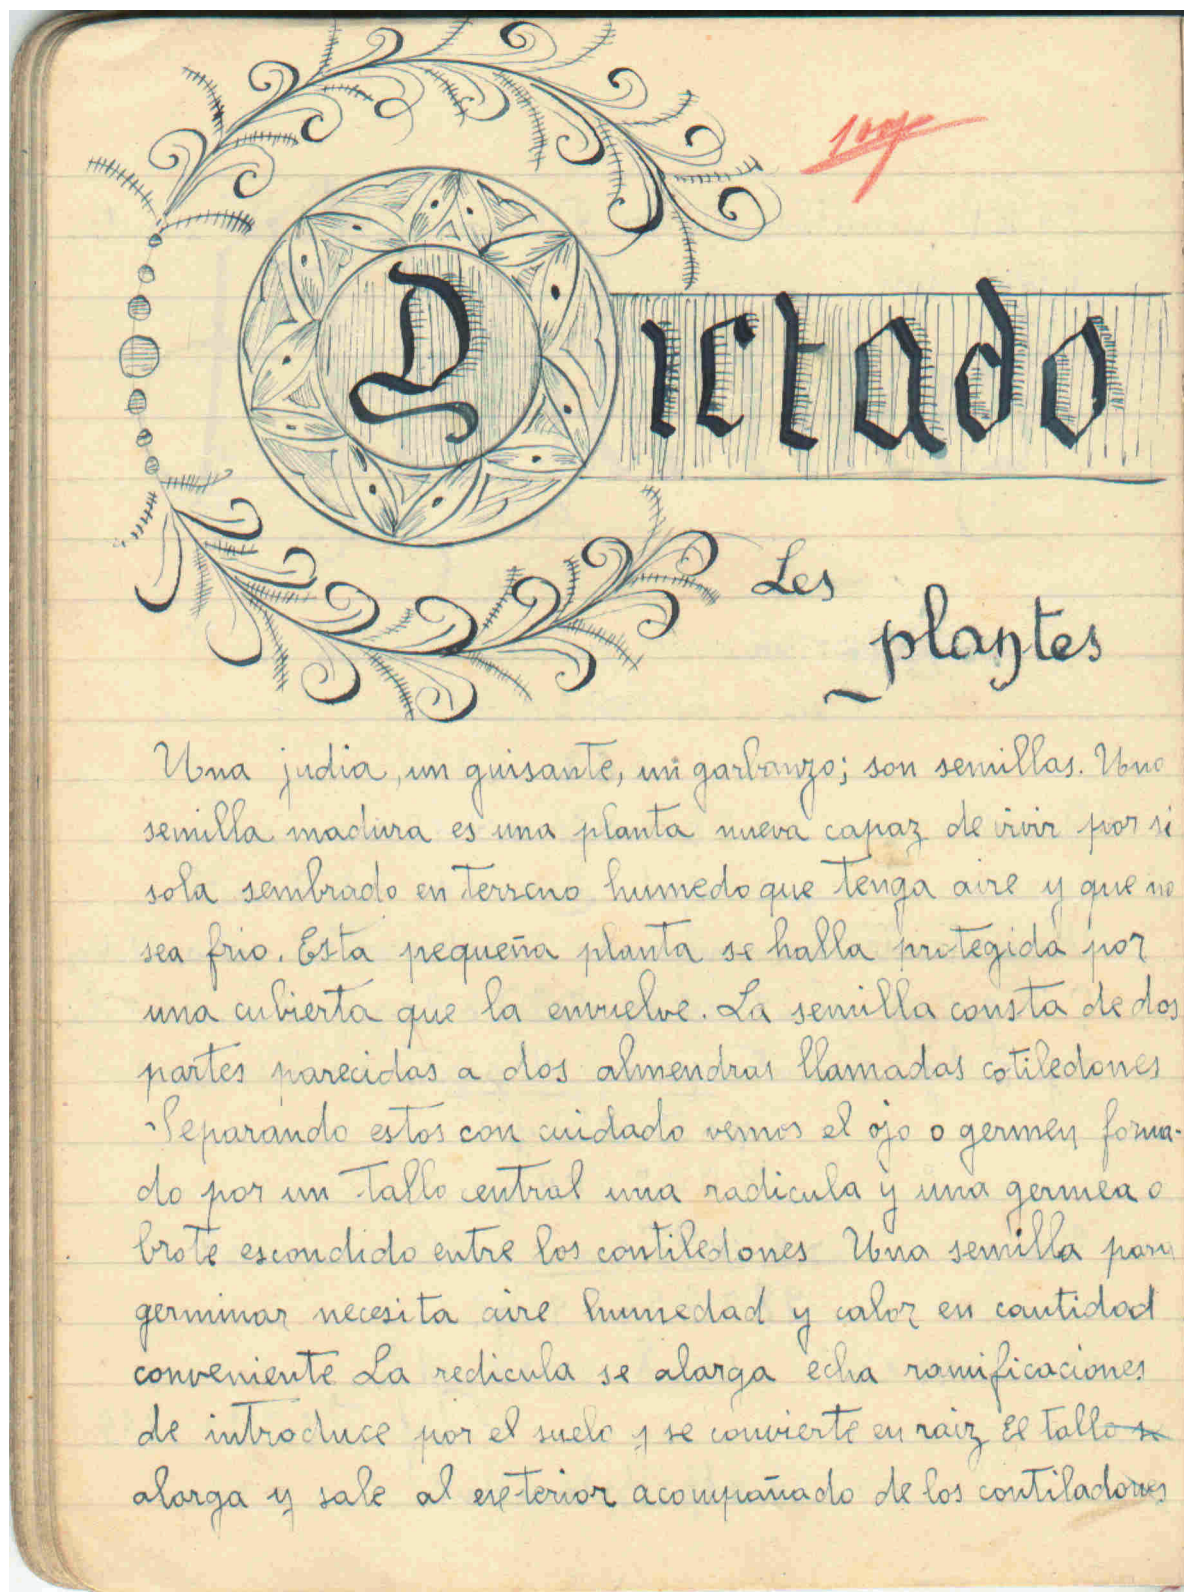 Dictado
Les
plantes
Una judia, un guisante, un garbanzo; son semillas. Una
semilla madura es una planta nueva capaz de vivir por si
sola sembrado en terreno humedo que tenga aire y que no
sea frio. Esta pequeña planta se halla protegida por
una cubierta que la envuelve. La semilla consta de dos
partes parecidas a dos almendras llamadas cotiledones
Separando estos con cuidado vemos el ojo o germen forma-
do por un tallo central una radicula y una germea o
brote escondido entre los contiledones Una semilla para
germinar necesita aire humedad y calor en cantidad
conveniente La redicula se alarga echa ramificaciones
de introduce por el suelo y se convierte en raiz El tallo se
alarga y sale al exeterior acompañado de los contiladones